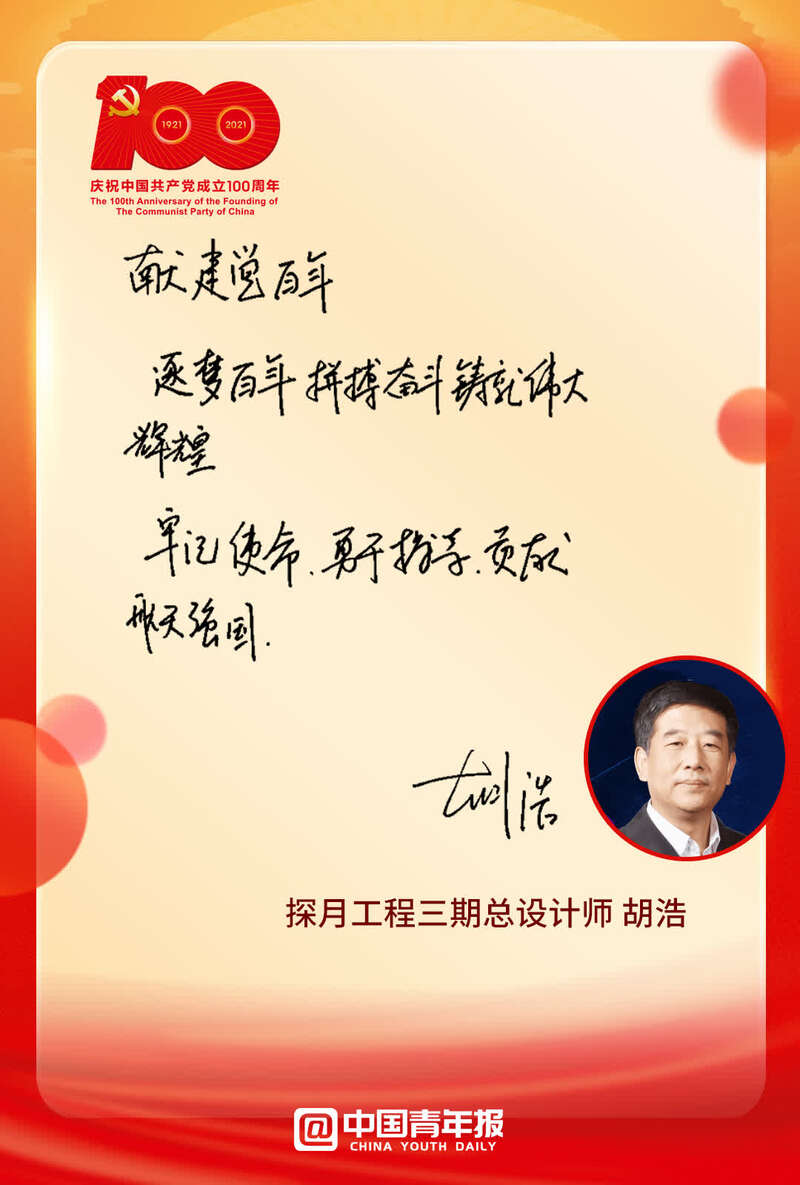 100
1921
2021
庆祝中国共产党成立100周年
The 100th Anniversary of the Founding of
The Communist Party of China
献建党百年
逐梦百年 拼搏奋斗铸就伟大
辉煌
牢记使命、勇于担当、贡献
航天强国.
胡浩
探月工程三期总设计师 胡浩
@中国青年报
CHINA YOUTH DAILY